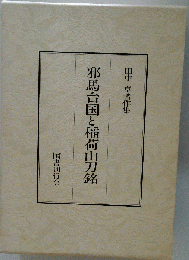 田中卓著作集
邪馬台国と稲荷山刀銘
国書刊行会